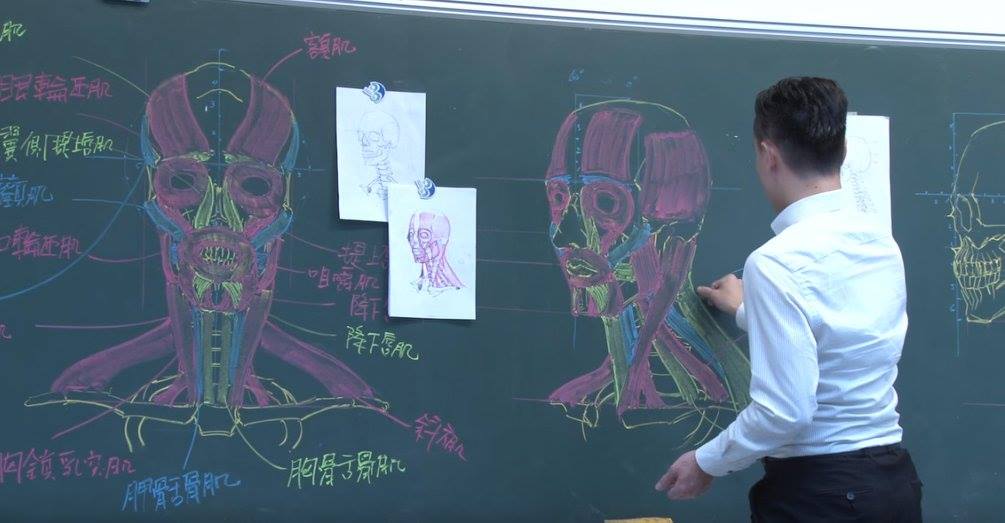 肌
額肌
眼輪匝肌
翼側提唇肌
顴肌
口輪匝肌
提上
咀嚼肌
降下
肌
降下唇肌
斜方肌
胸鎖乳突肌
胛骨舌骨肌
胸骨舌骨肌